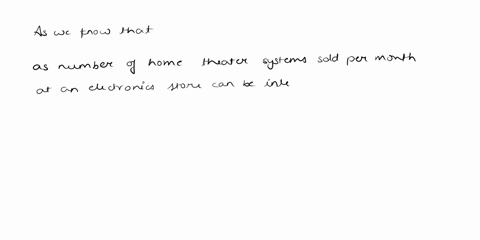 As we know that
as number of home theater systems sold per month
at an electronics store can be inte